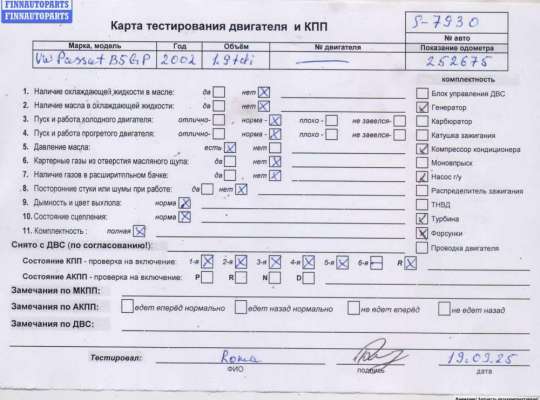 FINNAUTOPARTS
FINNAUTOPARTS
Карта тестирования двигателя и КПП
S-7930
№ авто
Марка, модель Год Объём № двигателя Показание одометра
VW Passat B5GP 2002 1.9tdi 252675
комплектность
1. Наличие охлаждающей жидкости в масле: да нет
2. Наличие масла в охлаждающей жидкости: да нет
3. Пуск и работа холодного двигателя: отлично- норма - плохо - не завелся-
4. Пуск и работа прогретого двигателя: отлично- норма - плохо - не завелся-
5. Давление масла: есть нет
6. Картерные газы из отверстия масляного щупа: да нет
7. Наличие газов в расширительном бачке: да нет
8. Посторонние стуки или шумы при работе: да нет
9. Дымность и цвет выхлопа: норма
10. Состояние сцепления: норма
11. Комплектность : полная
Блок управления ДВС
Генератор
Карбюратор
Катушка зажигания
Компрессор кондиционера
Моновпрыск
Насос г/у
Распределитель зажигания
ТНВД
Турбина
Форсунки
Проводка двигателя
Снято с ДВС (по согласованию!):
Состояние КПП - проверка на включение: 1-я 2-я 3-я 4-я 5-я 6-я R
Состояние АКПП - проверка на включение: P R N D
Замечания по МКПП:
Замечания по АКПП: едет вперёд нормально едет назад нормально не едет вперёд не едет назад
Замечания по ДВС:
Тестировал: Рома 19.03.25
ФИО подпись дата